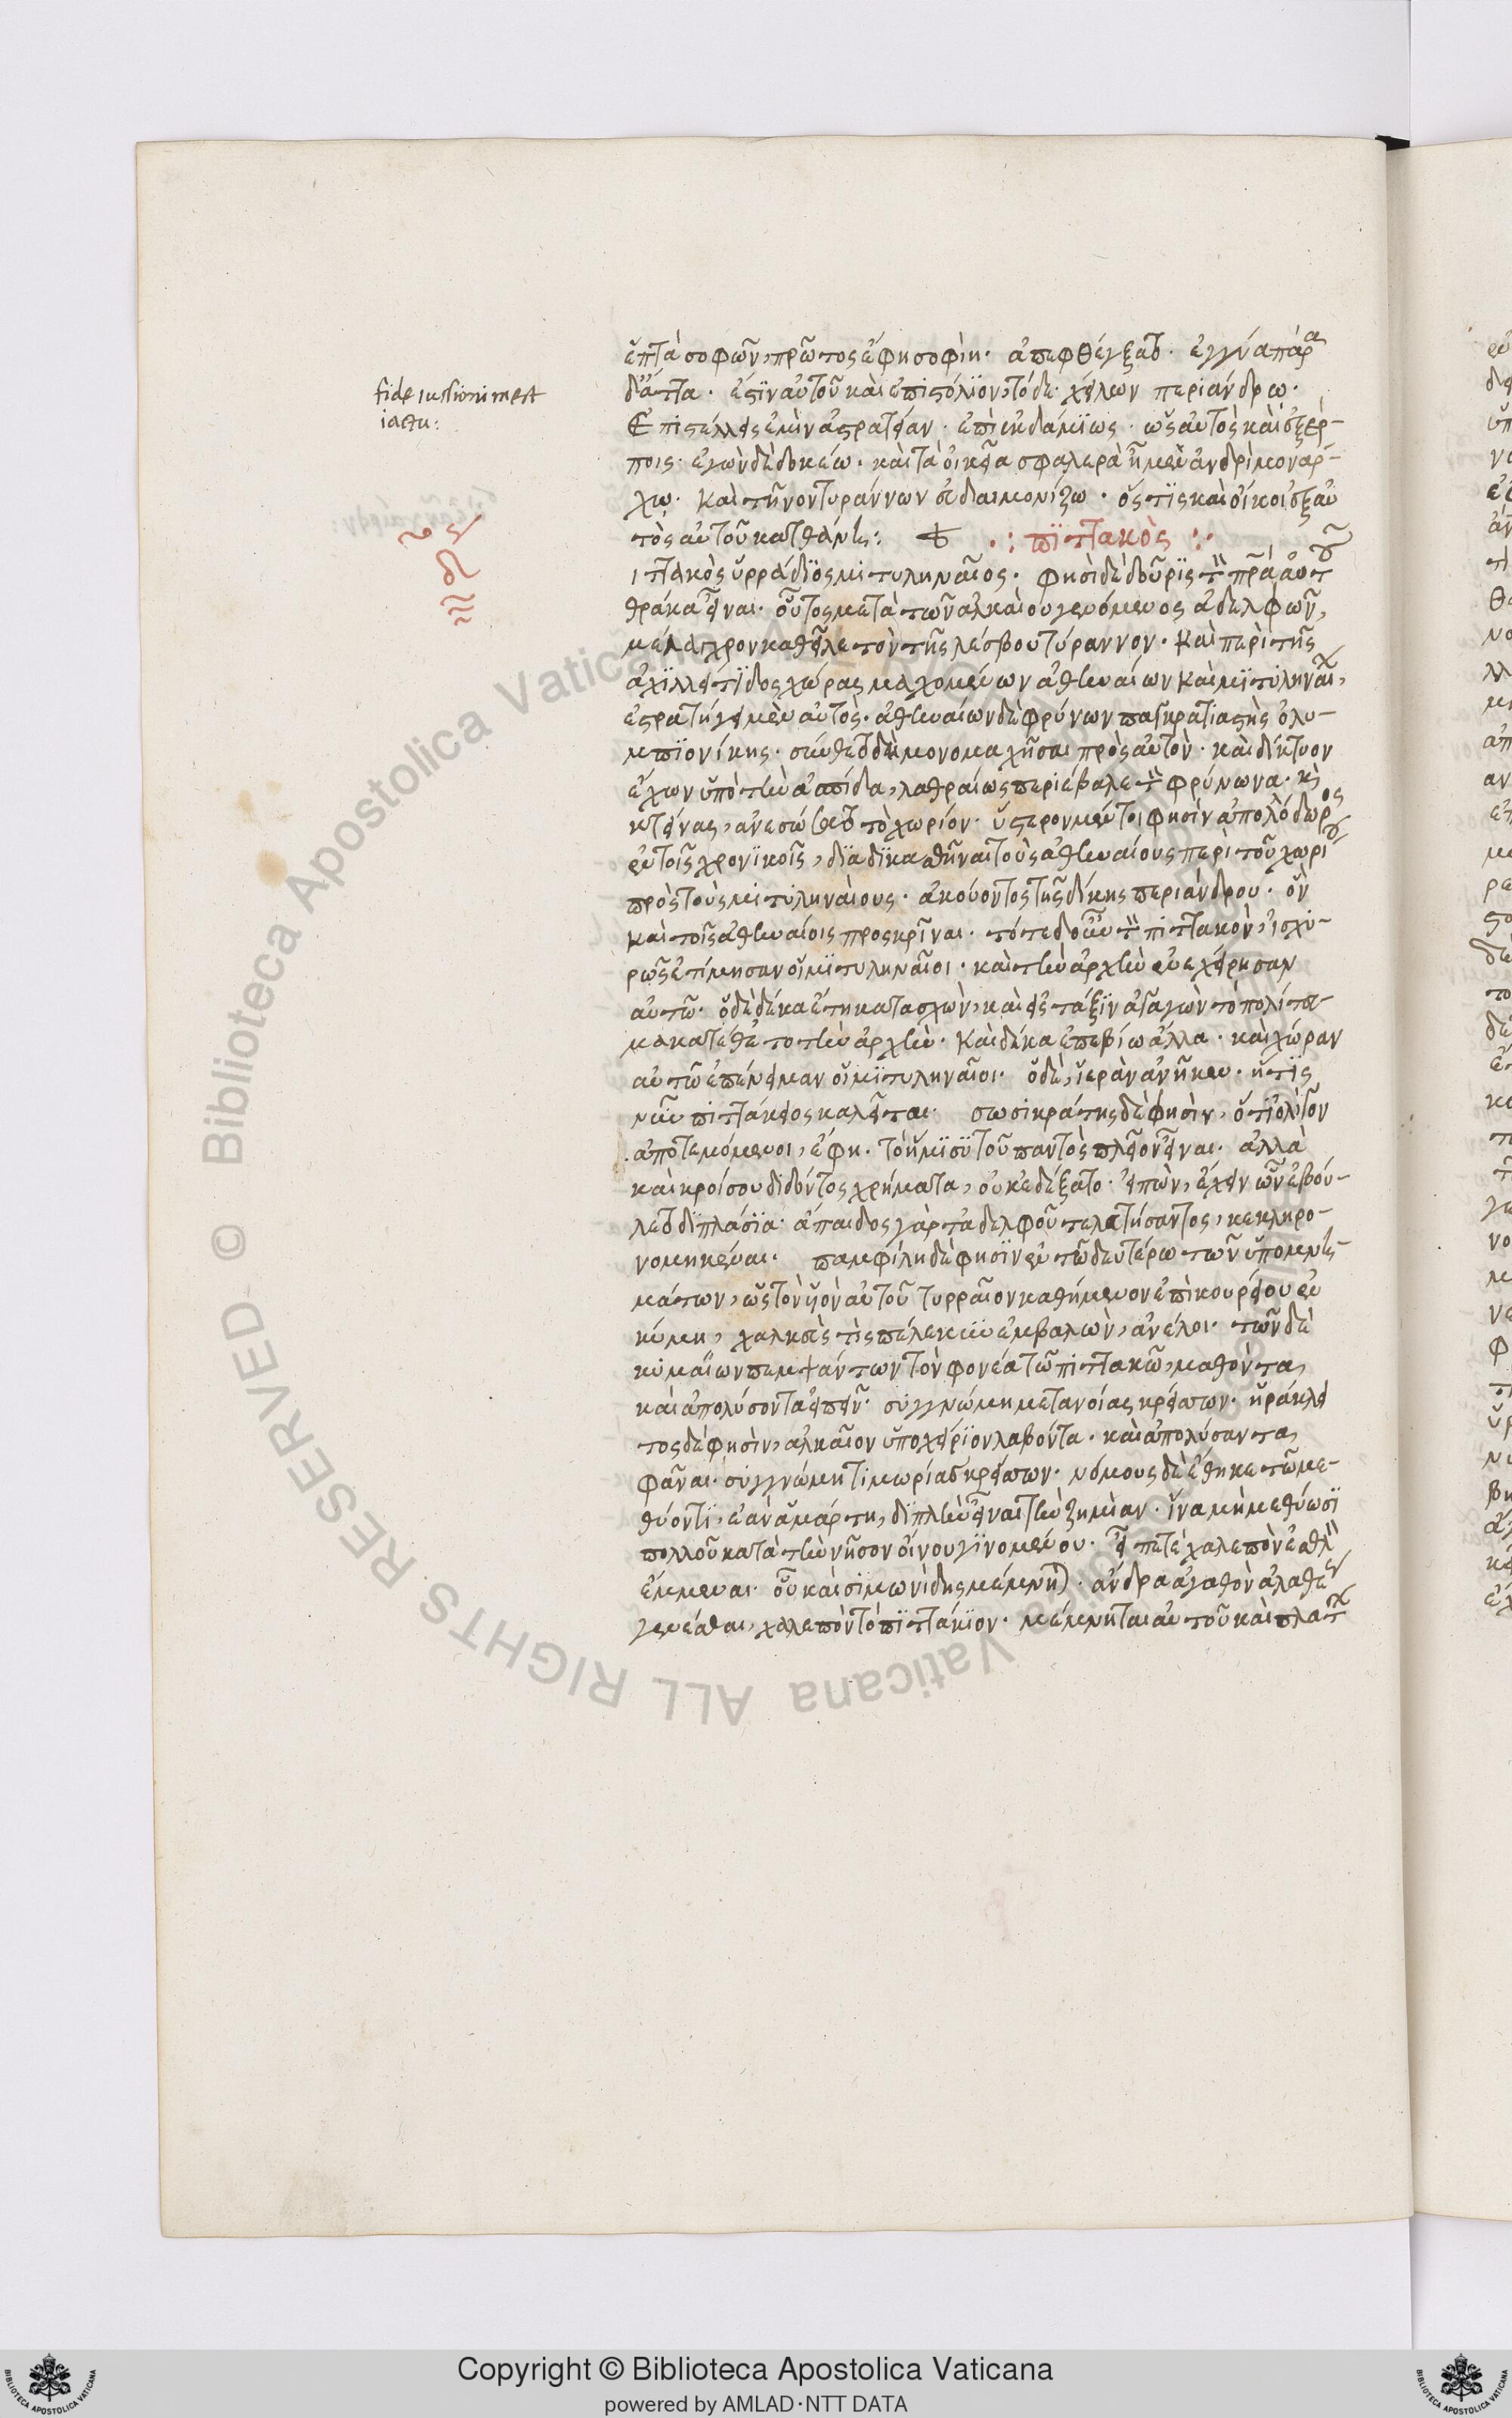 ἑπτὰ σοφῶν, πρῶτος ἔφη σοφίη. ἀπεφθέγξατο. ἐγγύα πάρα
δ' ἄτα. ἔστιν αὐτοῦ καὶ ἐπιστόλιον, τόδε. χείλων περιάνδρω.
fideiussioni mest
iactu:
Ἐπιστέλλεις ἐμὶν ἀστρατείαν. ἐπὶ ἐκδαμίας. ὡς αὐτὸς καὶ ἐξέρ-
ποις. ἐγὼν δὲ δοκέω. καὶ τὰ οἰκεῖα σφαλερὰ ἦμεν ἀνδρὶ μονάρ-
χῳ. καὶ τῆνον τυράννων εὐδαιμονίζω. ὅστις καὶ οἴκοι ἐξ αὐ
τὸς αὐτοῦ κατθάνῃ:
.: πιττακὸς :.
ιττακὸς ὑρράδιος μιτυληναῖος. φησὶ δὲ δοῦρις τὸν πρα αὐτοῦ
θράκα εἶναι. οὗτος μετὰ τῶν ἀλκαίου γενόμενος ἀδελφῶν,
μέλαγχρον καθεῖλε τὸν τῆς λέσβου τύραννον. καὶ περὶ τῆς
ἀχιλλείτιδος χώρας μαχομένων ἀθηναίων καὶ μιτυληναίων,
ἐστρατήγει μὲν αὐτὸς. ἀθηναίων δὲ φρύνων παγκρατιαστὴς ὀλυ-
μπιονίκης. συνέθετο δὴ μονομαχῆσαι πρὸς αὐτὸν. καὶ δίκτυον
ἔχων ὑπὸ τὴν ἀσπίδα, λαθραίως περιέβαλε τὸν φρύνωνα. κὶ
κτείνας, ἀνεσώσατο τὸ χωρίον. ὕστερον μέντοι φησὶν ἀπολλόδωρος
ἐν τοῖς χρονικοῖς, διαδικασθῆναι τοὺς ἀθηναίους περὶ τοῦ χωρίου
πρὸς τοὺς μιτυληναίους. ἀκούοντος τῆς δίκης περιάνδρου. ὃν
καὶ τοῖς ἀθηναίοις προσκρῖναι. τότε δ' οὖν τὸν πιττακὸν, ἰσχυ-
ρῶς ἐτίμησαν οἱ μιτυληναῖοι. καὶ τὴν ἀρχὴν ἐνεχείρησαν
αὐτῶ. ὁ δὲ δέκα ἔτη κατασχὼν, καὶ εἰς τάξιν ἀγαγὼν τὸ πολίτευ-
μα κατέθετο τὴν ἀρχὴν. καὶ δέκα ἐπεβίω ἄλλα. καὶ χώραν
αὐτῶ ἐπένειμαν οἱ μιτυληναῖοι. ὁ δὲ, ἱερὰν ἀνῆκεν. ἥτις
νῦν πιττάκειος καλεῖται. σωσικράτης δὲ φησὶν, ὅτι ὀλίγον
ἀποτεμόμενοι, ἔφη. τὸ ἥμισυ τοῦ παντὸς πλεῖον εἶναι. ἀλλὰ
καὶ κροίσου διδόντος χρήματα, οὐκ ἐδέξατο. εἰπὼν, ἔχειν ὧν ἐβού-
λετο διπλάσια. ἄπαιδος γὰρ τἀδελφοῦ τελευτήσαντος, κεκληρο-
νομηκέναι. παμφίλη δὲ φησὶν ἐν τῶ δευτέρω τῶν ὑπομνη-
μάτων, ὡς τὸν υἱὸν αὐτοῦ τυρραῖον καθήμενον ἐπὶ κουρείου ἐν
κύμη, χαλκεὺς τὶς πέλεκυν ἐμβαλὼν, ἀνέλοι. τῶν δὲ
κυμαίων πεμψάντων τὸν φονέα τῶ πιττακῶ, μαθόντα,
καὶ ἀπολύσοντα εἰπεῖν. συγγνώμη μετανοίας κρείσσων. ἡράκλει
τος δὲ φησὶν, ἀλκαῖον ὑποχείριον λαβόντα. καὶ ἀπολύσαντα,
φᾶναι. συγγνώμη τιμωρίας κρείσσων. νόμους δὲ ἔθηκε τῶ με-
θύοντι, ἐὰν ἁμάρτη, διπλῆν εἶναι τὴν ζημίαν. ἵνα μὴ μεθύωσι
πολλοῦ κατὰ τὴν νῆσον οἴνου γινομένου. εἶπέ τε χαλεπὸν ἐσθλὸν
ἔμμεναι. οὗ καὶ σιμωνίδης μέμνηται. ἄνδρα ἀγαθὸν ἀλαθέως
γενέσθαι, χαλεπὸν τὸ πιττάκιον. μέμνηται αὐτοῦ καὶ πλάτων
© Biblioteca Apostolica Vaticana ALL RIGHTS RESERVED
Copyright © Biblioteca Apostolica Vaticana
powered by AMLAD·NTT DATA